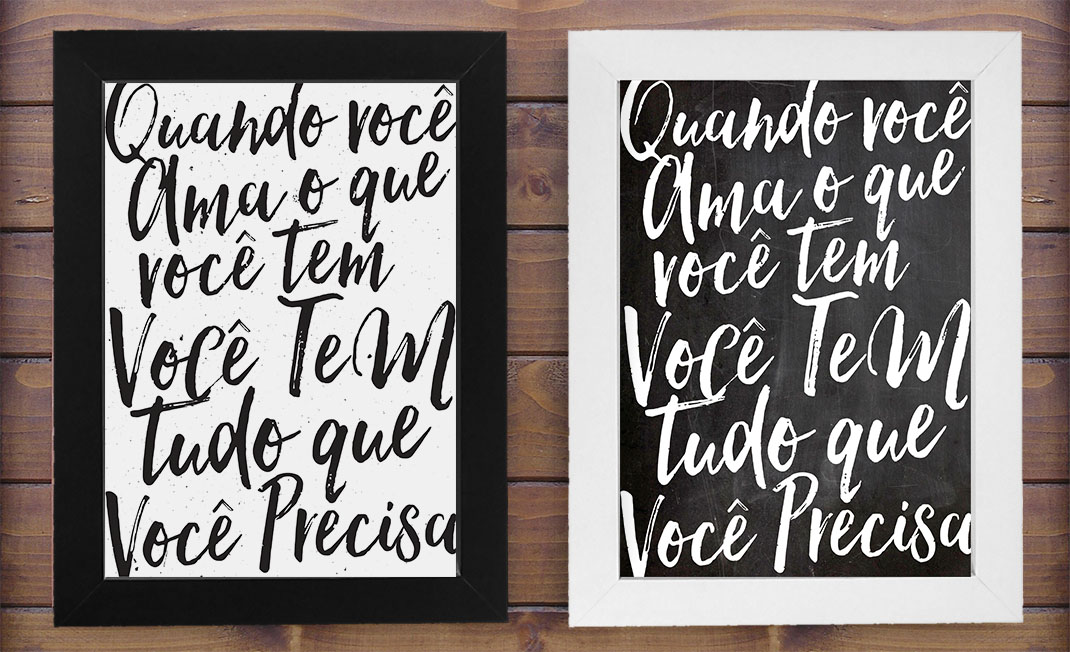 Quando você
Ama o que
você tem
Você TeM
Tudo que
Você Precisa
Quando você
Ama o que
você tem
Você TeM
Tudo que
Você Precisa